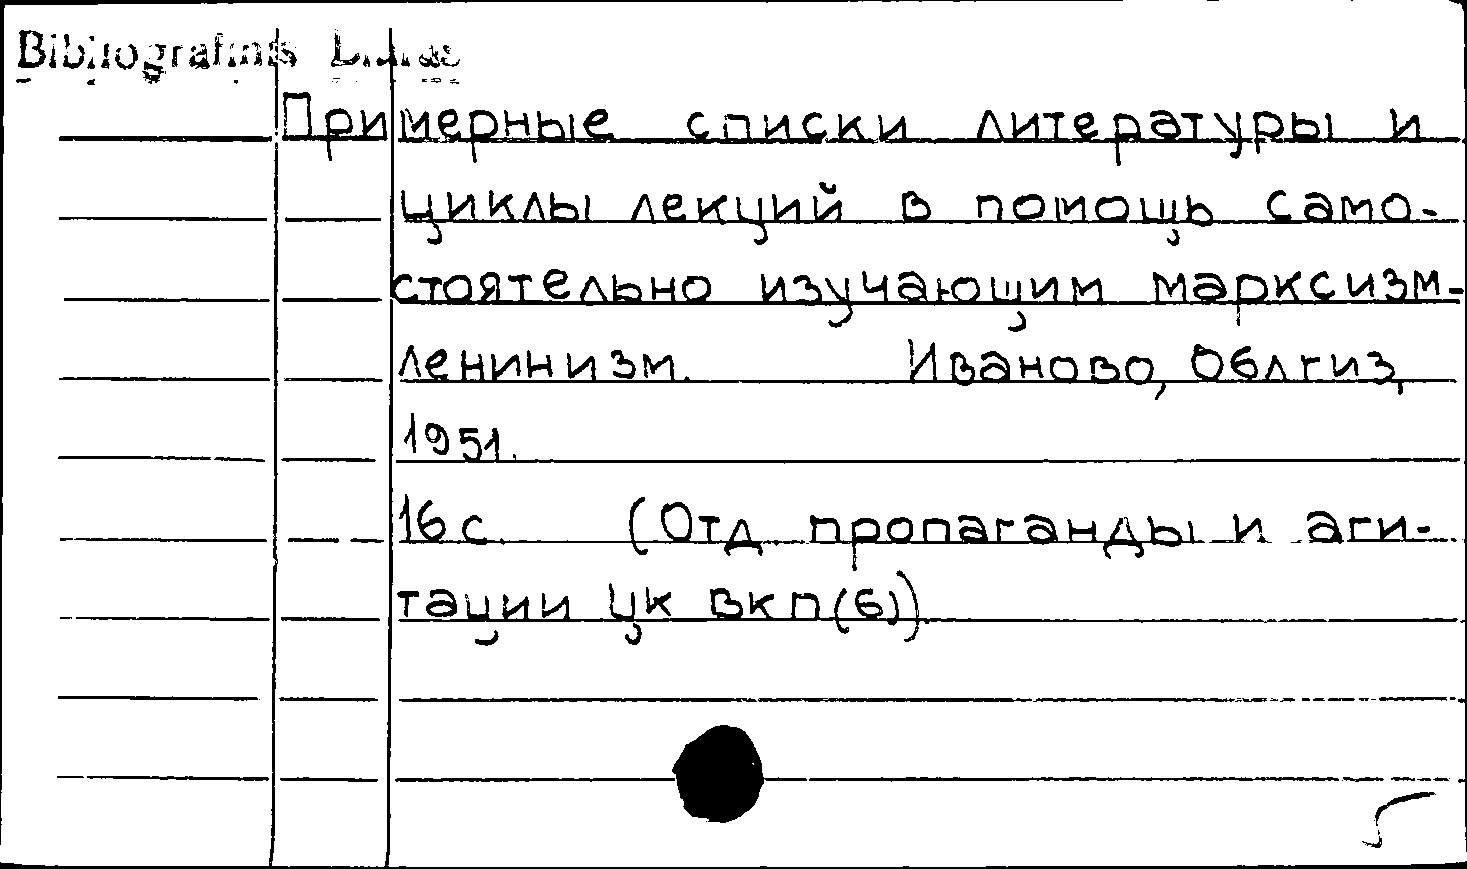 Bibliografinis
Примерные списки литературы и
циклы лекций в помощь само-
стоятельно изучающим марксизм-
ленинизм. Иваново, Облгиз,
1951.
16 с. (Отд. пропаганды и аги-
тации ЦК ВКП(б)).